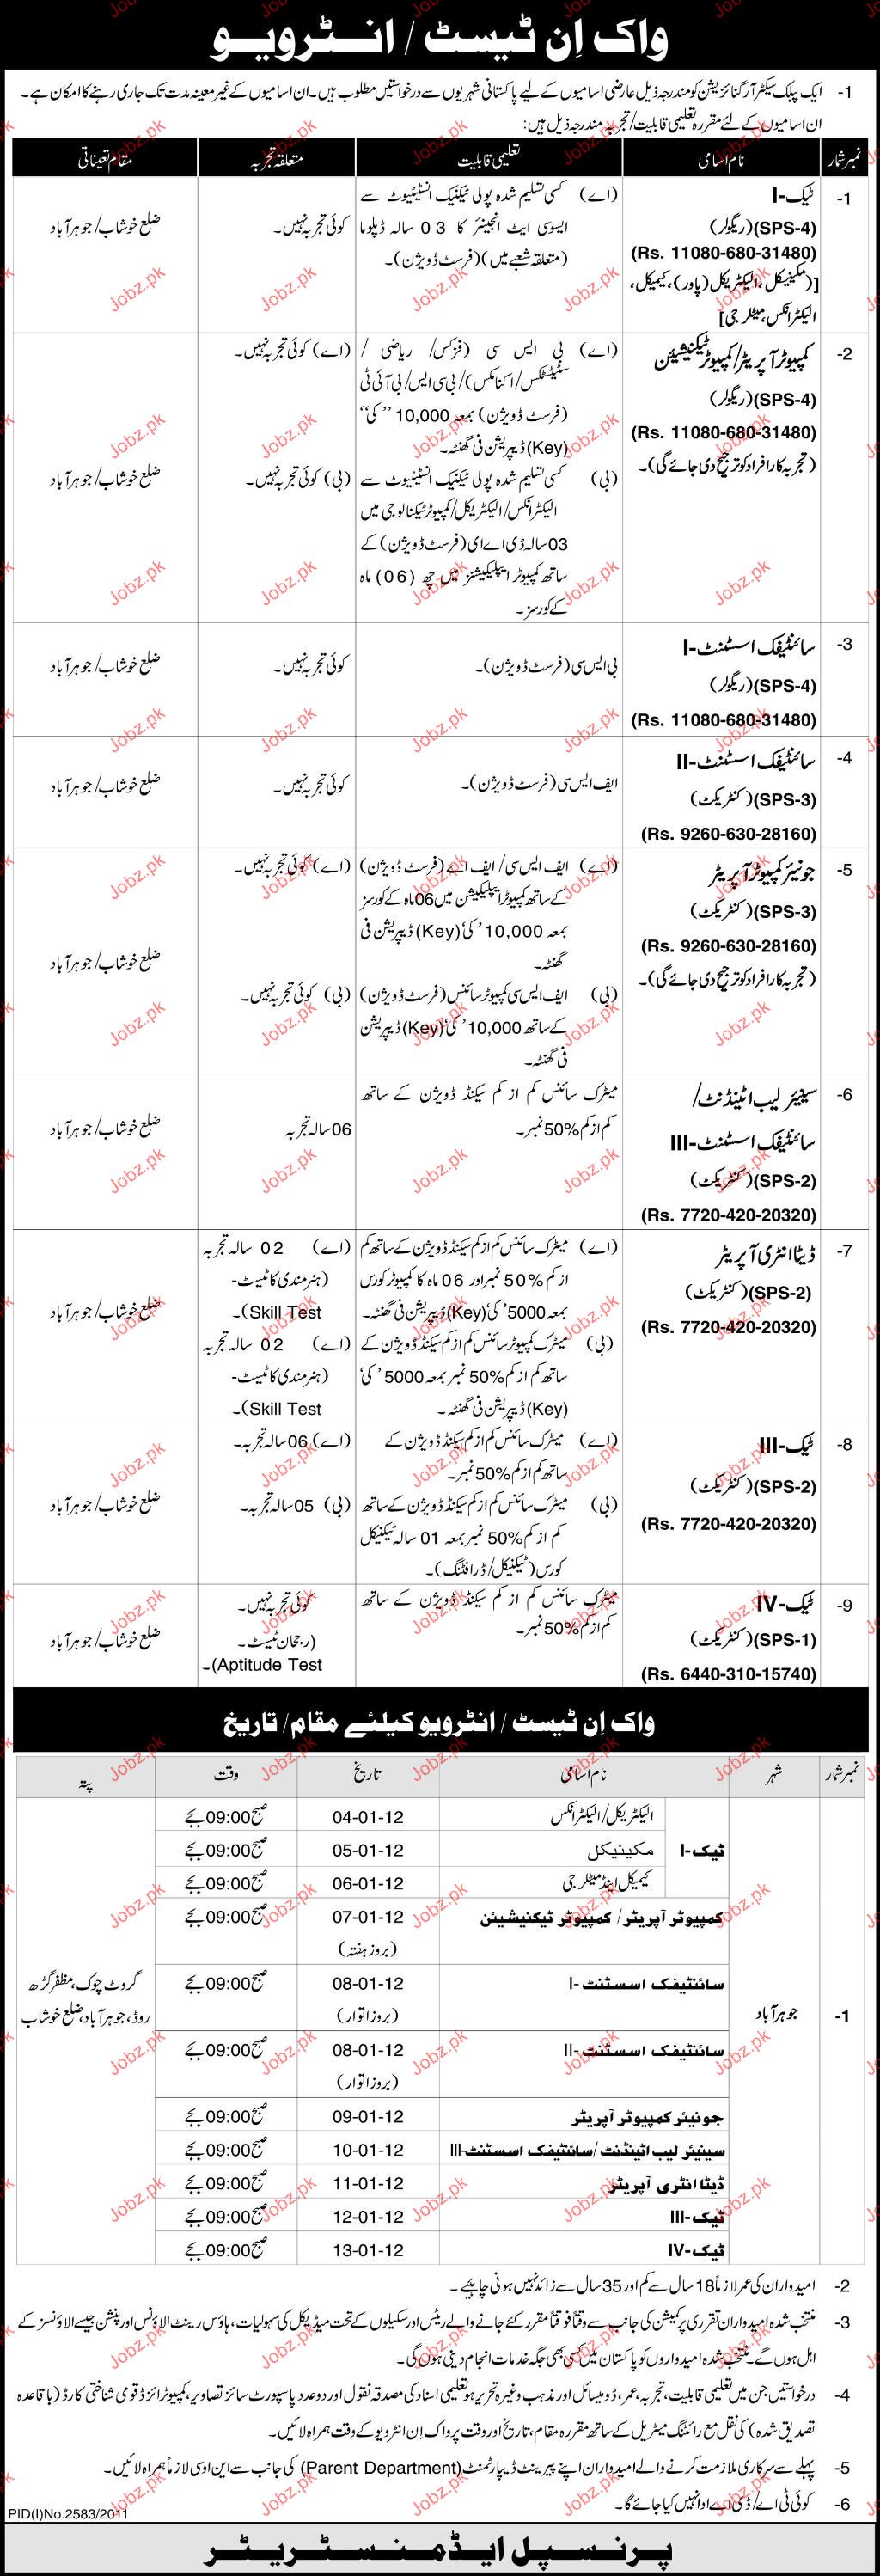 واک اِن ٹیسٹ / انٹرویو
1- ایک پبلک سیکٹر آرگنائزیشن کو مندرجہ ذیل عارضی اسامیوں کے لیے پاکستانی شہریوں سے درخواستیں مطلوب ہیں۔ ان اسامیوں کے غیر معینہ مدت تک جاری رہنے کا امکان ہے۔
ان اسامیوں کے لئے مقررہ تعلیمی قابلیت/ تجربہ مندرجہ ذیل ہیں:
نمبر شمار نام اسامی تعلیمی قابلیت متعلقہ تجربہ مقام تعیناتی
1- ٹیک-I
(SPS-4) (ریگولر)
(Rs. 11080-680-31480)
[(مکینیکل، الیکٹریکل (پاور)، کیمیکل،
الیکٹرانکس، میٹلرجی]
(اے) کسی تسلیم شدہ پولی ٹیکنیک انسٹیٹیوٹ سے
ایسوسی ایٹ انجینئر کا 03 سالہ ڈپلوما
(متعلقہ شعبے میں) (فرسٹ ڈویژن)۔
کوئی تجربہ نہیں۔
ضلع خوشاب/ جوہرآباد
2- کمپیوٹر آپریٹر/ کمپیوٹر ٹیکنیشیئن
(SPS-4) (ریگولر)
(Rs. 11080-680-31480)
(تجربہ کار افراد کو ترجیح دی جائے گی)۔
(اے) بی ایس سی (فزکس/ ریاضی /
سٹیٹکس/ اکنامکس)/ بی سی ایس/ بی آئی ٹی
(فرسٹ ڈویژن) بمعہ 10,000 ''کی''
(Key) ڈیپریشن فی گھنٹہ۔
(اے) کوئی تجربہ نہیں۔
(بی) کسی تسلیم شدہ پولی ٹیکنیک انسٹیٹیوٹ سے
الیکٹرانکس/ الیکٹریکل/ کمپیوٹر ٹیکنالوجی میں
03 سالہ ڈی اے ای (فرسٹ ڈویژن) کے
ساتھ کمپیوٹر ایپلیکیشنز میں چھ (06) ماہ
کے کورسز۔
(بی) کوئی تجربہ نہیں۔
ضلع خوشاب/ جوہرآباد
3- سائنٹیفک اسسٹنٹ-I
(SPS-4) (ریگولر)
(Rs. 11080-680-31480)
بی ایس سی (فرسٹ ڈویژن)۔
کوئی تجربہ نہیں۔
ضلع خوشاب/ جوہرآباد
4- سائنٹیفک اسسٹنٹ-II
(SPS-3) (کنٹریکٹ)
(Rs. 9260-630-28160)
ایف ایس سی (فرسٹ ڈویژن)۔
کوئی تجربہ نہیں۔
ضلع خوشاب/ جوہرآباد
5- جونیئر کمپیوٹر آپریٹر
(SPS-3) (کنٹریکٹ)
(Rs. 9260-630-28160)
(تجربہ کار افراد کو ترجیح دی جائے گی)۔
(اے) ایف ایس سی/ ایف اے (فرسٹ ڈویژن)
کے ساتھ کمپیوٹر ایپلیکیشن میں 06 ماہ کے کورسز
بمعہ 10,000 'کی' (Key) ڈیپریشن فی
گھنٹہ۔
(اے) کوئی تجربہ نہیں۔
(بی) ایف ایس سی کمپیوٹر سائنس (فرسٹ ڈویژن)
کے ساتھ 10,000 'کی' (Key) ڈیپریشن
فی گھنٹہ۔
(بی) کوئی تجربہ نہیں۔
ضلع خوشاب/ جوہرآباد
6- سینیئر لیب اٹینڈنٹ/
سائنٹیفک اسسٹنٹ-III
(SPS-2) (کنٹریکٹ)
(Rs. 7720-420-20320)
میٹرک سائنس کم از کم سیکنڈ ڈویژن کے ساتھ
کم از کم 50% نمبر۔
06 سالہ تجربہ
ضلع خوشاب/ جوہرآباد
7- ڈیٹا انٹری آپریٹر
(SPS-2) (کنٹریکٹ)
(Rs. 7720-420-20320)
(اے) میٹرک سائنس کم از کم سیکنڈ ڈویژن کے ساتھ کم
از کم 50% نمبر اور 06 ماہ کا کمپیوٹر کورس
بمعہ 5000 'کی' (Key) ڈیپریشن فی گھنٹہ۔
(اے) 02 سالہ تجربہ
(ہنرمندی کا ٹیسٹ-
Skill Test)۔
(بی) میٹرک کمپیوٹر سائنس کم از کم سیکنڈ ڈویژن کے
ساتھ کم از کم 50% نمبر بمعہ 5000 'کی'
(Key) ڈیپریشن فی گھنٹہ۔
(اے) 02 سالہ تجربہ
(ہنرمندی کا ٹیسٹ-
Skill Test)۔
ضلع خوشاب/ جوہرآباد
8- ٹیک-III
(SPS-2) (کنٹریکٹ)
(Rs. 7720-420-20320)
(اے) میٹرک سائنس کم از کم سیکنڈ ڈویژن کے
ساتھ کم از کم 50% نمبر۔
(اے) 06 سالہ تجربہ۔
(بی) میٹرک سائنس کم از کم سیکنڈ ڈویژن کے ساتھ
کم از کم 50% نمبر بمعہ 01 سالہ ٹیکنیکل
کورس (ٹیکنیکل/ ڈرافٹنگ)۔
(بی) 05 سالہ تجربہ۔
ضلع خوشاب/ جوہرآباد
9- ٹیک-IV
(SPS-1) (کنٹریکٹ)
(Rs. 6440-310-15740)
میٹرک سائنس کم از کم سیکنڈ ڈویژن کے ساتھ
کم از کم 50% نمبر۔
کوئی تجربہ نہیں۔
(رجحان ٹیسٹ۔
Aptitude Test)۔
ضلع خوشاب/ جوہرآباد
واک اِن ٹیسٹ / انٹرویو کیلئے مقام/ تاریخ
نمبر شمار شہر نام اسامی تاریخ وقت پتہ
1- جوہرآباد
ٹیک-I
الیکٹریکل/ الیکٹرانکس 04-01-12 صبح 09:00 بجے
مکینیکل 05-01-12 صبح 09:00 بجے
کیمیکل اینڈ میٹلرجی 06-01-12 صبح 09:00 بجے
کمپیوٹر آپریٹر/ کمپیوٹر ٹیکنیشیئن 07-01-12 صبح 09:00 بجے
(بروز ہفتہ)
سائنٹیفک اسسٹنٹ-I 08-01-12 صبح 09:00 بجے
(بروز اتوار)
سائنٹیفک اسسٹنٹ-II 08-01-12 صبح 09:00 بجے
(بروز اتوار)
جونیئر کمپیوٹر آپریٹر 09-01-12 صبح 09:00 بجے
سینیئر لیب اٹینڈنٹ/سائنٹیفک اسسٹنٹ-III 10-01-12 صبح 09:00 بجے
ڈیٹا انٹری آپریٹر 11-01-12 صبح 09:00 بجے
ٹیک-III 12-01-12 صبح 09:00 بجے
ٹیک-IV 13-01-12 صبح 09:00 بجے
گروٹ چوک، مظفر گڑھ
روڈ، جوہرآباد، ضلع خوشاب
2- امیدواران کی عمر لازماً 18 سال سے کم اور 35 سال سے زائد نہیں ہونی چاہیئے۔
3- منتخب شدہ امیدواران تقرری پر کمیشن کی جانب سے وقتاً فوقتاً مقرر کئے جانے والے ریٹس اور سکیلوں کے تحت میڈیکل کی سہولیات، ہاؤس رینٹ الاؤنس اور پنشن جیسے الاؤنسز کے
اہل ہوں گے۔ منتخب شدہ امیدواروں کو پاکستان میں کسی بھی جگہ خدمات انجام دینی ہوں گی۔
4- درخواستیں جن میں تعلیمی قابلیت، تجربہ، عمر، ڈومیسائل اور مذہب وغیرہ تحریر ہو تعلیمی اسناد کی مصدقہ نقول اور دو عدد پاسپورٹ سائز تصاویر، کمپیوٹرائزڈ قومی شناختی کارڈ (باقاعدہ
تصدیق شدہ) کی نقل مع رائٹنگ میٹریل کے ساتھ مقررہ مقام، تاریخ اور وقت پر واک اِن انٹرویو کے وقت ہمراہ لائیں۔
5- پہلے سے سرکاری ملازمت کرنے والے امیدواران اپنے پیرینٹ ڈیپارٹمنٹ (Parent Department) کی جانب سے این او سی لازماً ہمراہ لائیں۔
6- کوئی ٹی اے/ ڈی اے ادا نہیں کیا جائے گا۔
PID(I)No.2583/2011
پرنسپل ایڈمنسٹریٹر
Jobz.pk